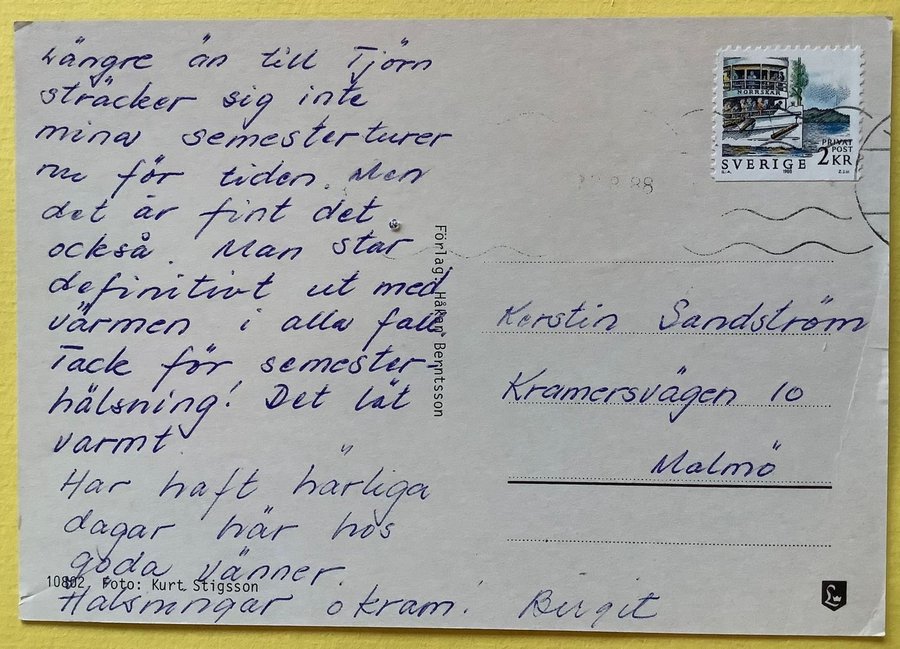 Längre än till Tjörn
sträcker sig inte
mina semesterturer
nu för tiden. Men
det är fint det
också. Man står
definitivt ut med
värmen i alla fall
Tack för semester-
hälsning! Det lät
varmt.
Har haft härliga
dagar här hos
goda vänner.
Hälsningar o kram! Birgit
10802 Foto: Kurt Stigsson
Förlag: Håkan Berntsson
NORRSKÄR
PRIVAT
POST
SVERIGE 2KR
1988
8.88
Kerstin Sandström
Kramersvägen 10
Malmö
L